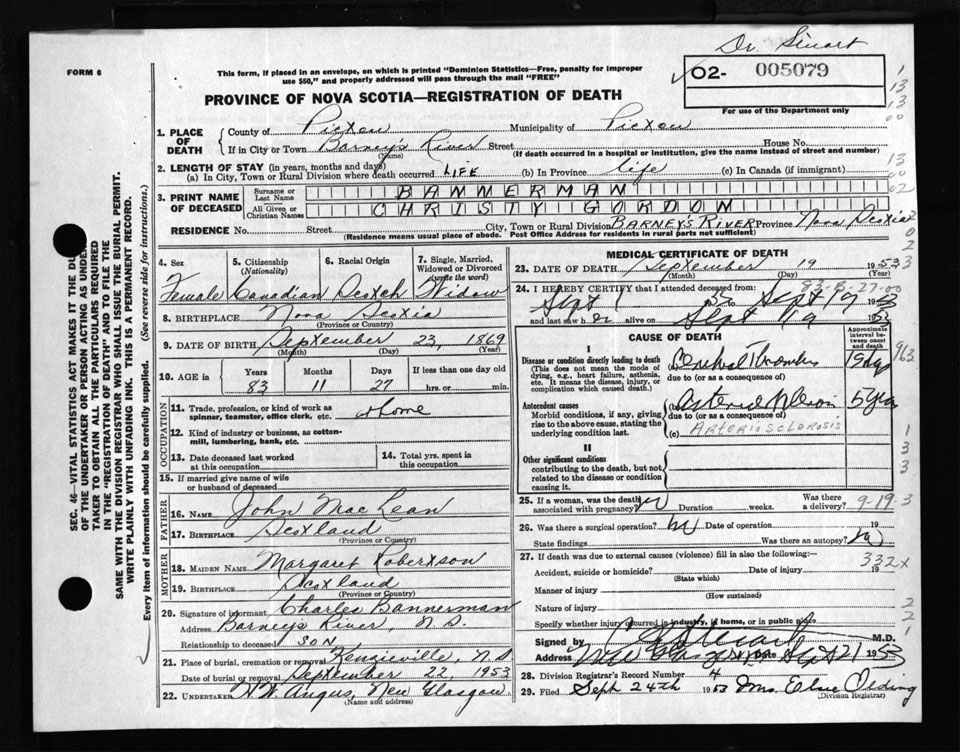 Dr. Stuart
FORM 6
This form, if placed in an envelope, on which is printed "Dominion Statistics—Free, penalty for improper
use $50," and properly addressed will pass through the mail "FREE"
02- 005079
For use of the Department only
PROVINCE OF NOVA SCOTIA—REGISTRATION OF DEATH
1. PLACE OF DEATH County of Pictou Municipality of Pictou
If in City or Town Barney's River Street House No.
(Name) (If death occurred in a hospital or institution, give the name instead of street and number)
2. LENGTH OF STAY (in years, months and days)
(a) In City, Town or Rural Division where death occurred LIFE (b) In Province life (c) In Canada (if immigrant)
3. PRINT NAME OF DECEASED Surname or Last Name BANNERMAN
All Given or Christian Names CHRISTY GORDON
RESIDENCE No. Street City, Town or Rural Division BARNEY'S RIVER Province Nova Scotia
(Residence means usual place of abode. Post Office Address for residents in rural parts not sufficient)
SEC. 46—VITAL STATISTICS ACT MAKES IT THE DUTY
OF THE UNDERTAKER OR PERSON ACTING AS UNDER-
TAKER TO OBTAIN ALL THE PARTICULARS REQUIRED
IN THE "REGISTRATION OF DEATH" AND TO FILE THE
SAME WITH THE DIVISION REGISTRAR WHO SHALL ISSUE THE BURIAL PERMIT.
WRITE PLAINLY WITH UNFADING INK. THIS IS A PERMANENT RECORD.
Every item of information should be carefully supplied. (See reverse side for instructions.)
4. Sex 5. Citizenship (Nationality) 6. Racial Origin 7. Single, Married, Widowed or Divorced (write the word)
Female Canadian Scotch Widow
8. BIRTHPLACE Nova Scotia
(Province or Country)
9. DATE OF BIRTH September 23, 1869
(Month) (Day) (Year)
10. AGE in Years Months Days If less than one day old
83 11 27 hrs. or min.
OCCUPATION
11. Trade, profession, or kind of work as spinner, teamster, office clerk, etc. at home
12. Kind of industry or business, as cotton-mill, lumbering, bank, etc.
13. Date deceased last worked at this occupation
14. Total yrs. spent in this occupation
15. If married give name of wife or husband of deceased
FATHER
16. NAME John MacLean
17. BIRTHPLACE Scotland
(Province or Country)
MOTHER
18. MAIDEN NAME Margaret Robertson
19. BIRTHPLACE Scotland
(Province or Country)
20. Signature of informant Charles Bannerman
Address Barneys River, N.S.
Relationship to deceased SON
21. Place of burial, cremation or removal Kenzieville, N.S
Date of burial or removal September 22, 1953
22. UNDERTAKER H.W. Angus, New Glasgow.
(Name and address)
MEDICAL CERTIFICATE OF DEATH
23. DATE OF DEATH September 19 1953
(Day) (Year)
24. I HEREBY CERTIFY that I attended deceased from: 83-B-27-00
Sept 1 Sept 19 1953
and last saw her alive on Sept 19 1953
CAUSE OF DEATH
Approximate interval between onset and death
I
Disease or condition directly leading to death
(This does not mean the mode of dying, e.g., heart failure, asthenia, etc. It means the disease, injury, or complication which caused death.)
due to (or as a consequence of)
Antecedent causes
Morbid conditions, if any, giving rise to the above cause, stating the underlying condition last.
(b) 5 yrs
due to (or as a consequence of)
(c) ARTERIOSCLEROSIS
II
Other significant conditions
contributing to the death, but not related to the disease or condition causing it.
25. If a woman, was the death associated with pregnancy? Duration weeks. Was there a delivery? 9-19
26. Was there a surgical operation? Date of operation 19
State findings Was there an autopsy?
27. If death was due to external causes (violence) fill in also the following:— 332x
Accident, suicide or homicide? Date of injury 19
(State which)
Manner of injury
(How sustained)
Nature of injury
Specify whether injury occurred in industry, if home, or in public place
Signed by M.D.
Address New Glasgow Date Sept 21 1953
28. Division Registrar's Record Number 4
29. Filed Sept 24th 1953 Mrs. Elsie Olding
(Division Registrar)